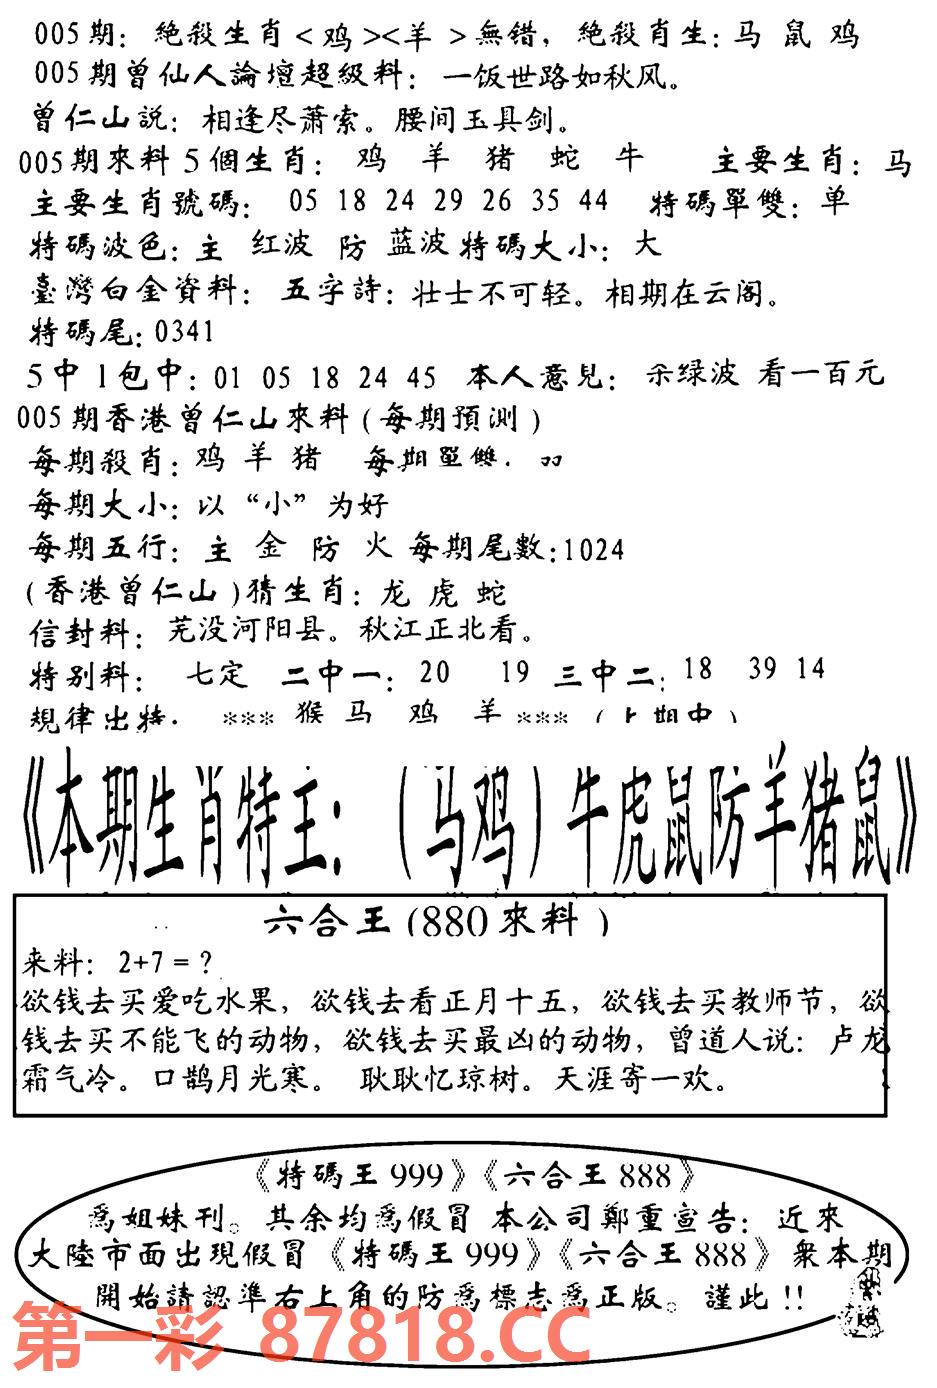 005期：絶殺生肖<鸡><羊>無错，絶殺肖生：马 鼠 鸡
005期曾仙人論壇超級料：一饭世路如秋风。
曾仁山説：相逢尽萧索。腰间玉具剑。
005期來料5個生肖：鸡 羊 猪 蛇 牛 主要生肖：马
主要生肖號碼：05 18 24 29 26 35 44 特碼單雙：单
特碼波色：主 红波 防 蓝波 特碼大小：大
臺灣白金資料：五字詩：壮士不可轻。相期在云阁。
特碼尾：0341
5中1包中：01 05 18 24 45 本人意見：买绿波 看一百元
005期香港曾仁山來料(每期預測)
每期殺肖：鸡 羊 猪 每期單雙：
每期大小：以“小”为好
每期五行：主 金 防 火 每期尾數：1024
(香港曾仁山)猜生肖：龙 虎 蛇
信封料：芜没河阳县。秋江正北看。
特别料：七定 二中一：20 19 三中二：18 39 14
規律出特：*** 猴 马 鸡 羊 ***（上期中）
《本期生肖特王：（马鸡）牛虎鼠防羊猪鼠》
六合王(880來料)
来料：2+7=？
欲钱去买爱吃水果，欲钱去看正月十五，欲钱去买教师节，欲
钱去买不能飞的动物，欲钱去买最凶的动物，曾道人说：卢龙
霜气冷。口鹊月光寒。 耿耿忆琼树。天涯寄一欢。
《特碼王999》《六合王888》
爲姐妹刊。其余均爲假冒 本公司鄭重宣告：近來
大陸市面出現假冒《特碼王999》《六合王888》衆本期
開始請認準右上角的防爲標志爲正版。謹此!!
第一彩 87818.CC